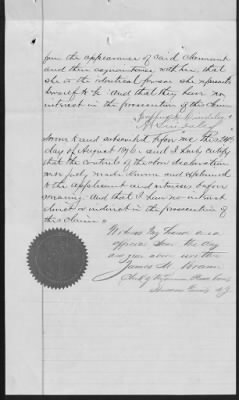 from the appearance of said Claimant
and their acquaintance with her, that
she is the identical person she represents
herself to be and that they have no
interest in the prosecution of this claim
Sworn to and subscribed before me this 24th
day of August 1896 and I hereby certify
that the contents of the above declaration
were fully made known and explained
to the applicant and witnesses before
swearing. And that I have no interest
direct or indirect in the prosecution of
this claim
Witness my hand and
official seal the day
and year above written
James H.
Clerk of the Common Pleas